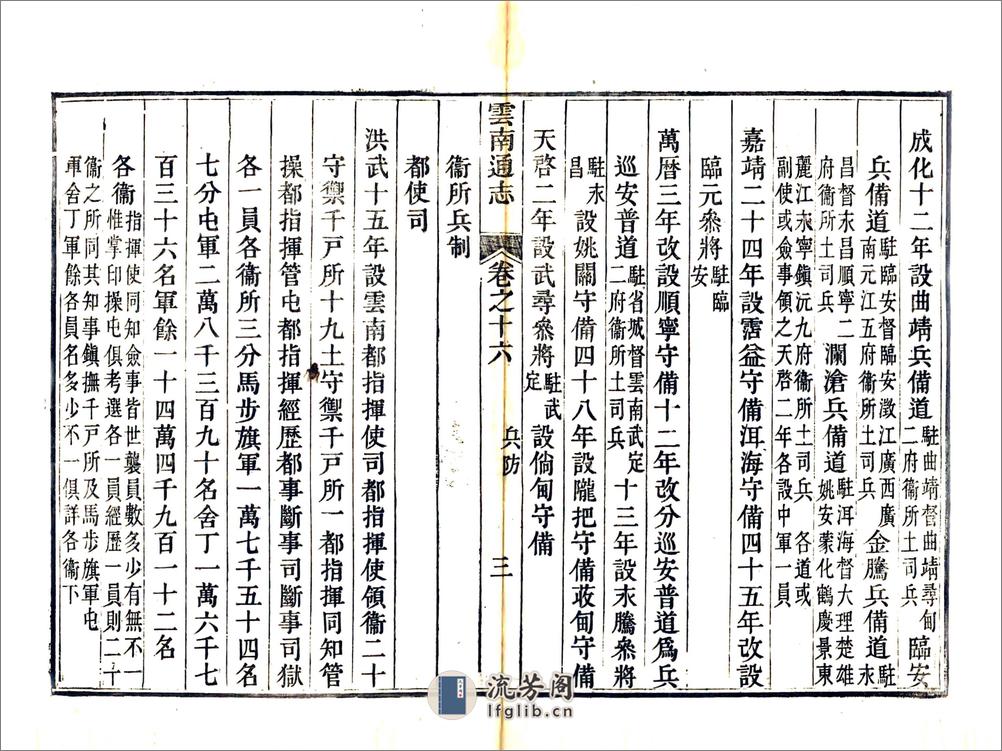 成化十二年設曲靖兵備道駐曲靖督曲靖尋甸二府衞所土司兵臨安
兵備道駐臨安督臨安澂江廣西廣南元江五府衞所土司兵金騰兵備道駐永
昌督永昌順寧二府衞所土司兵瀾滄兵備道駐洱海督大理楚雄姚安蒙化鶴慶景東
麗江永寧鎮沅九府衞所土司兵各道或副使或僉事領之天啓二年各設中軍一員
嘉靖二十四年設霑益守備洱海守備四十五年改設
臨元叅將駐臨安
萬曆三年改設順寧守備十二年改分巡安普道爲兵
巡安普道駐省城督雲南武定二府衞所土司兵十三年設永騰叅將
駐永昌設姚關守備四十八年設隴把守備政甸守備
天啓二年設武尋叅將駐武定設倘甸守備
雲南通志
卷之十六
兵防
三
衞所兵制
都使司
洪武十五年設雲南都指揮使司都指揮使領衞二十
守禦千戸所十九土守禦千戸所一都指揮同知管
操都指揮管屯都指揮經歷都事斷事司斷事司獄
各一員各衞所三分馬步旗軍一萬七千五十四名
七分屯軍二萬八千三百九十名舍丁一萬六千七
百三十六名軍餘一十四萬四千九百一十二名
各衞指揮使同知僉事皆世襲員數多少有無不一惟掌印操屯俱考選各一員經歷一員則二十
衞之所同其知事鎮撫千戸所及馬步旗軍屯軍舍丁軍餘各員名多少不一俱詳各衞下
流芳阁
lfglib.cn